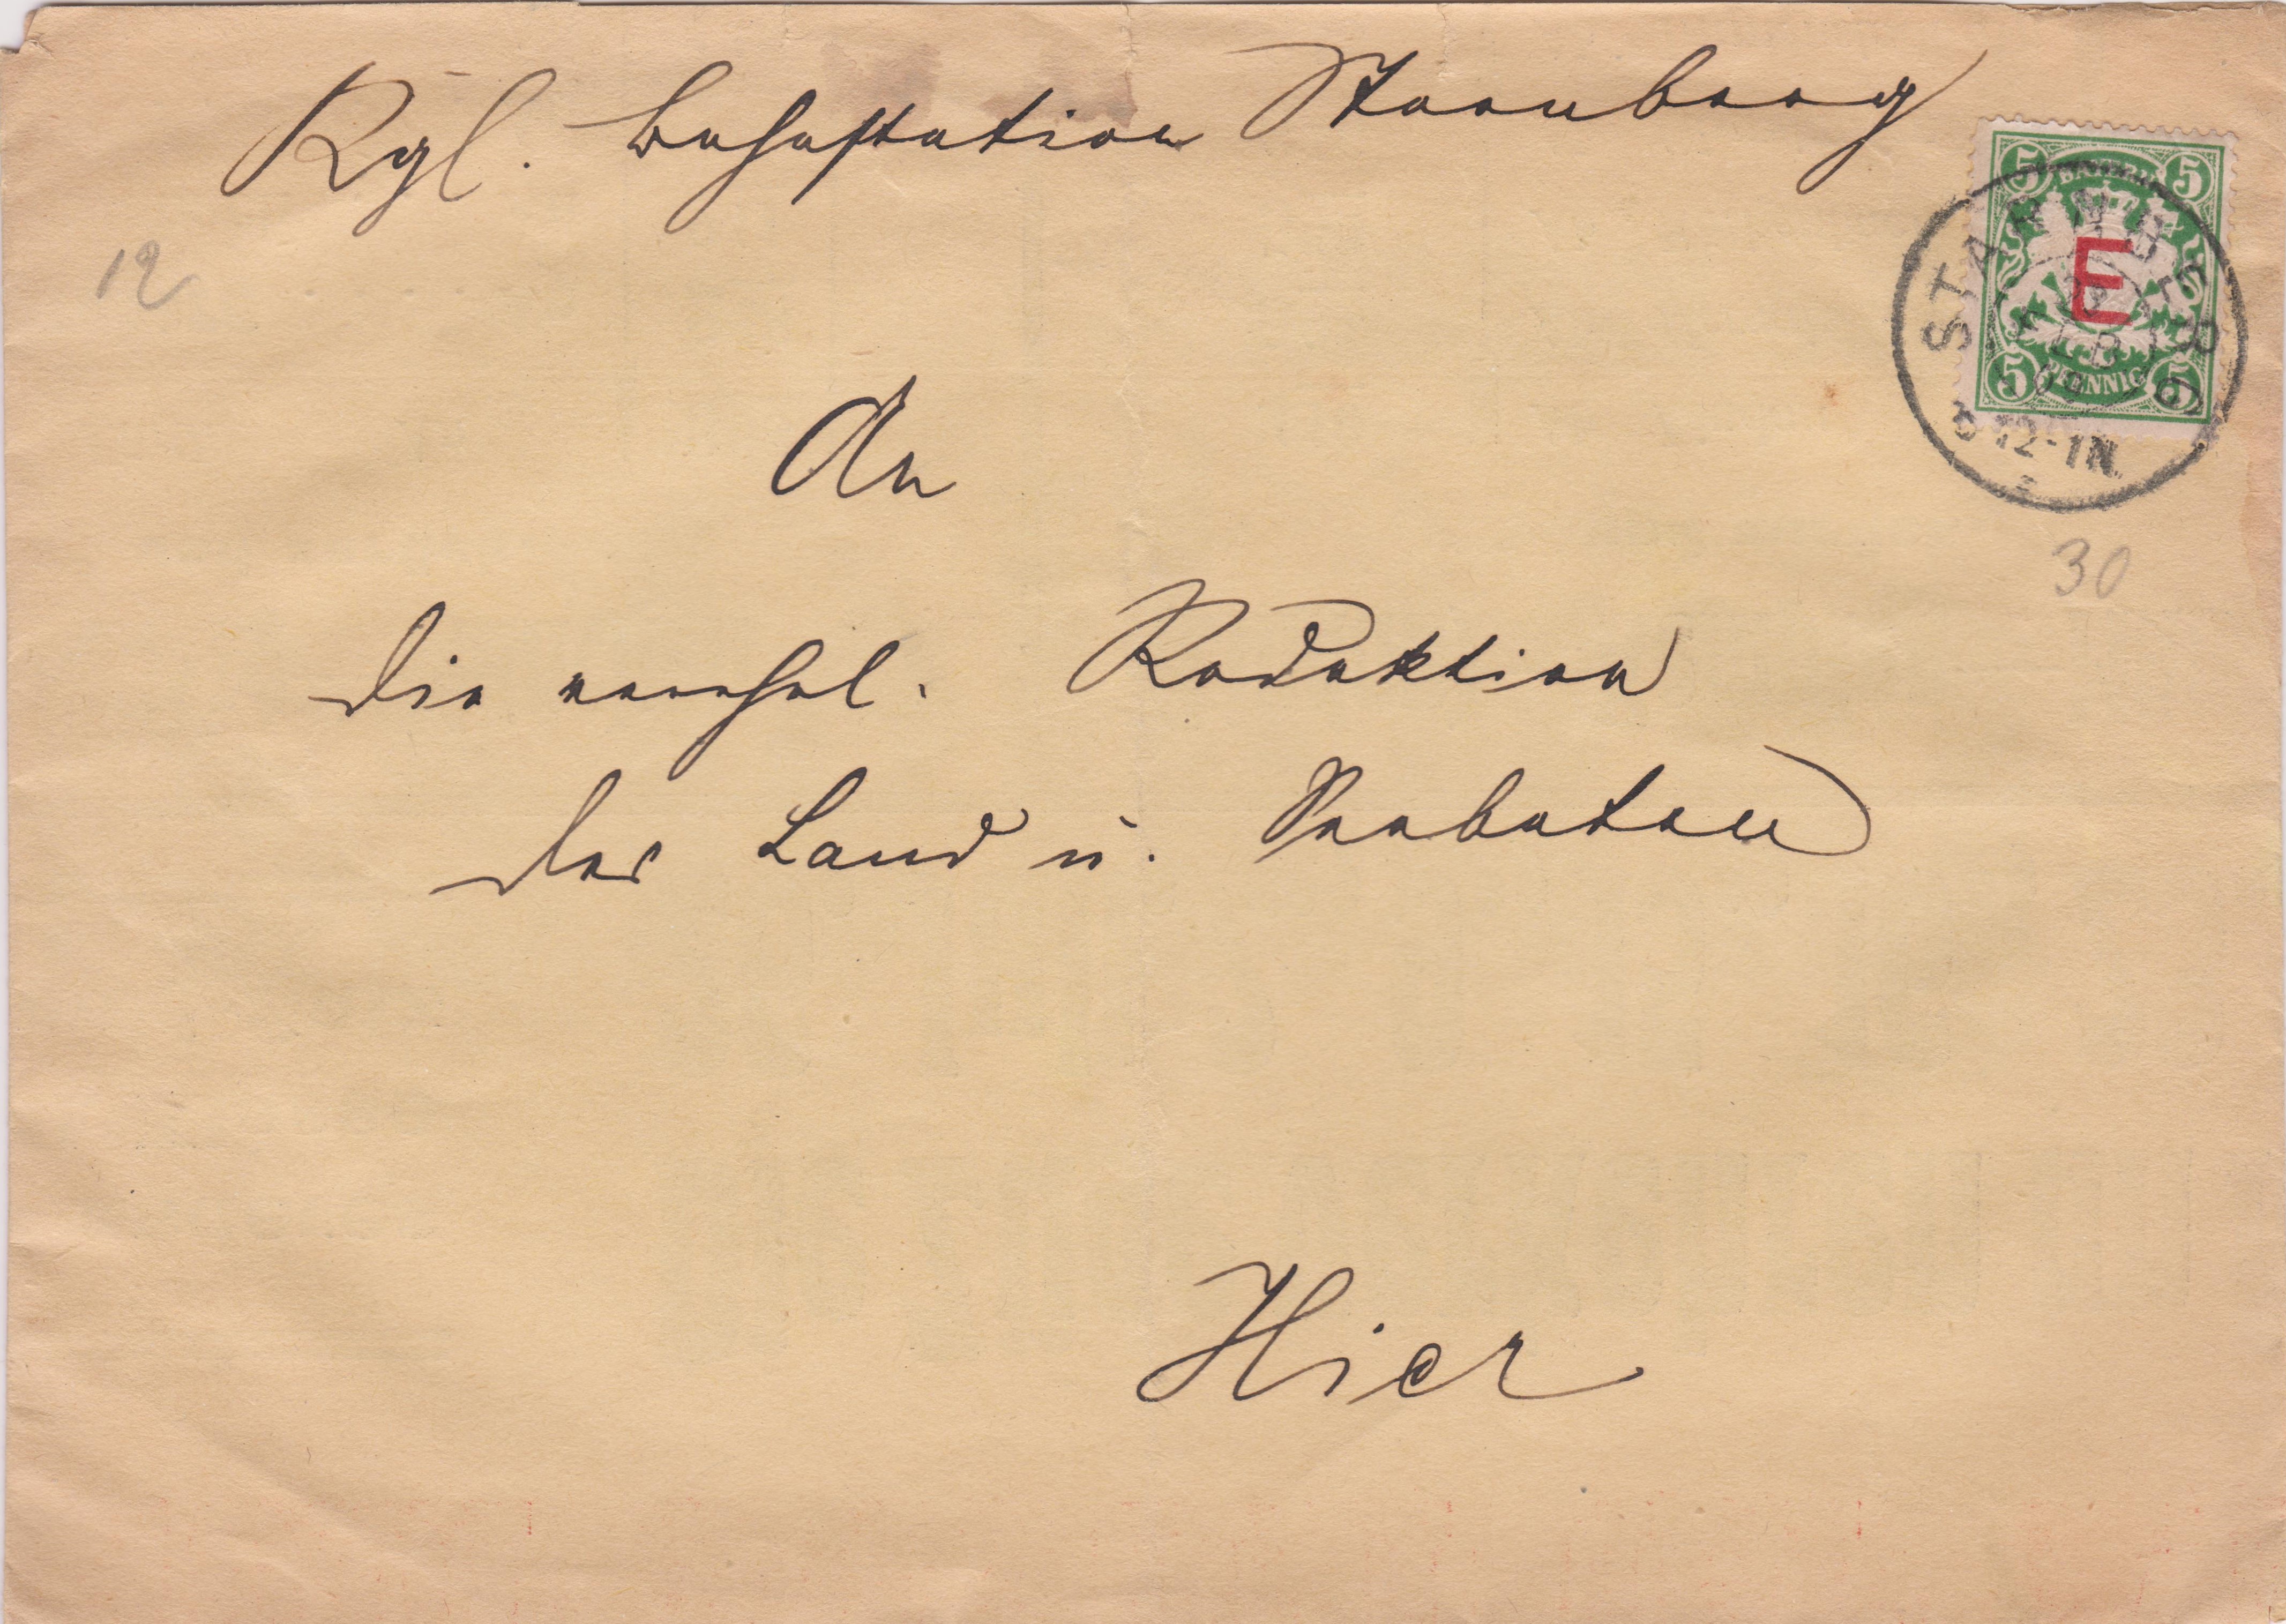 Kgl. Bahnstation Starnberg
12
5 BAYERN 5
E
5 PFENNIG 5
STARNBERG
12-1N.
30
An
die verehrl. Redaktion
des Land u. Seeboten
Hier